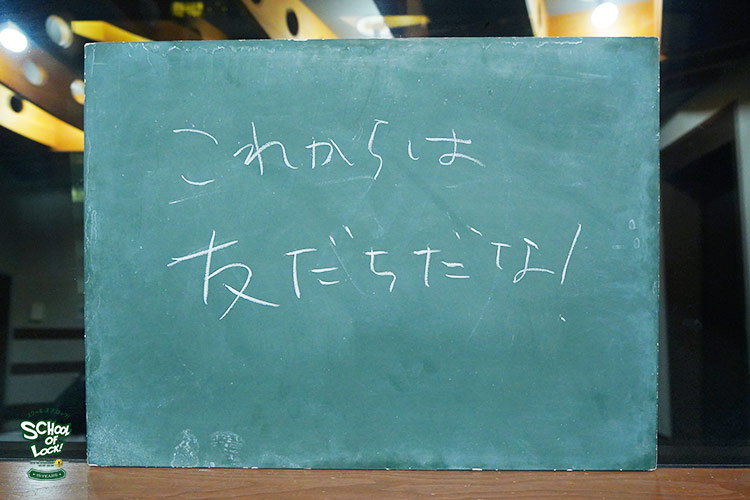 これからは
友だちだな!
SCHOOL
OF
LOCK!